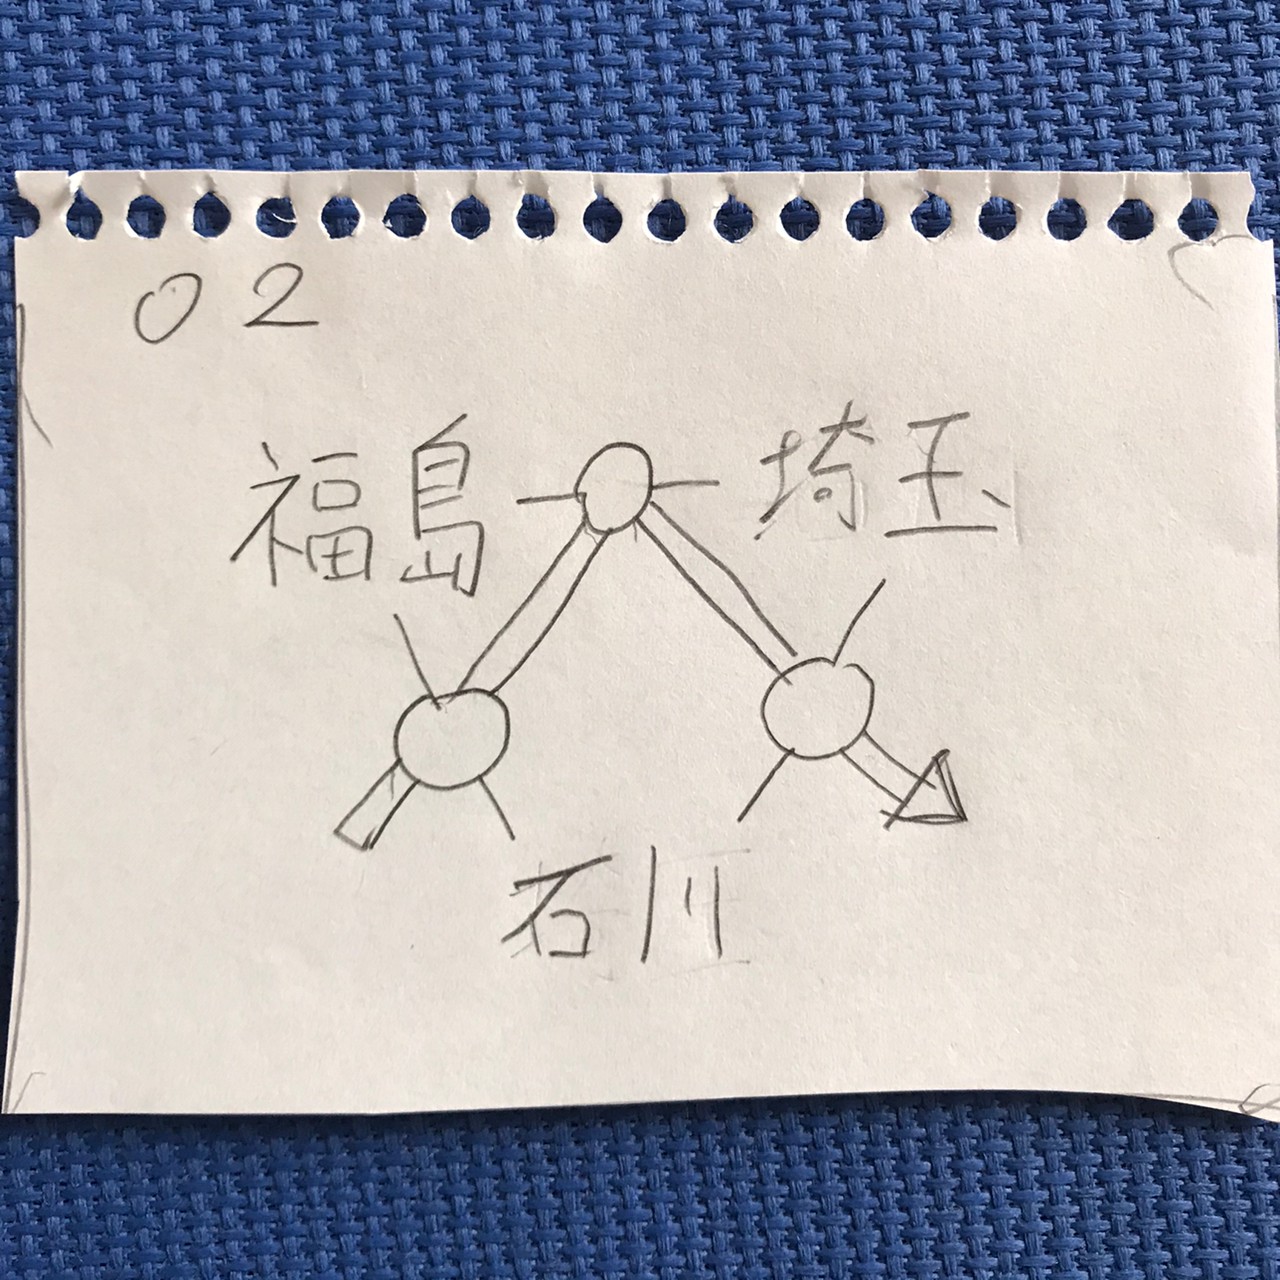 02
福島
埼玉
石川